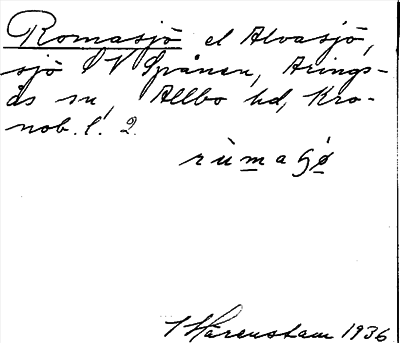 Romasjö el Alvasjö,
sjö S V Spånen, Arings-
ås sn, Allbo hd, Kro-
nob. l. 2.
rùmaɧø
Härenstam 1936